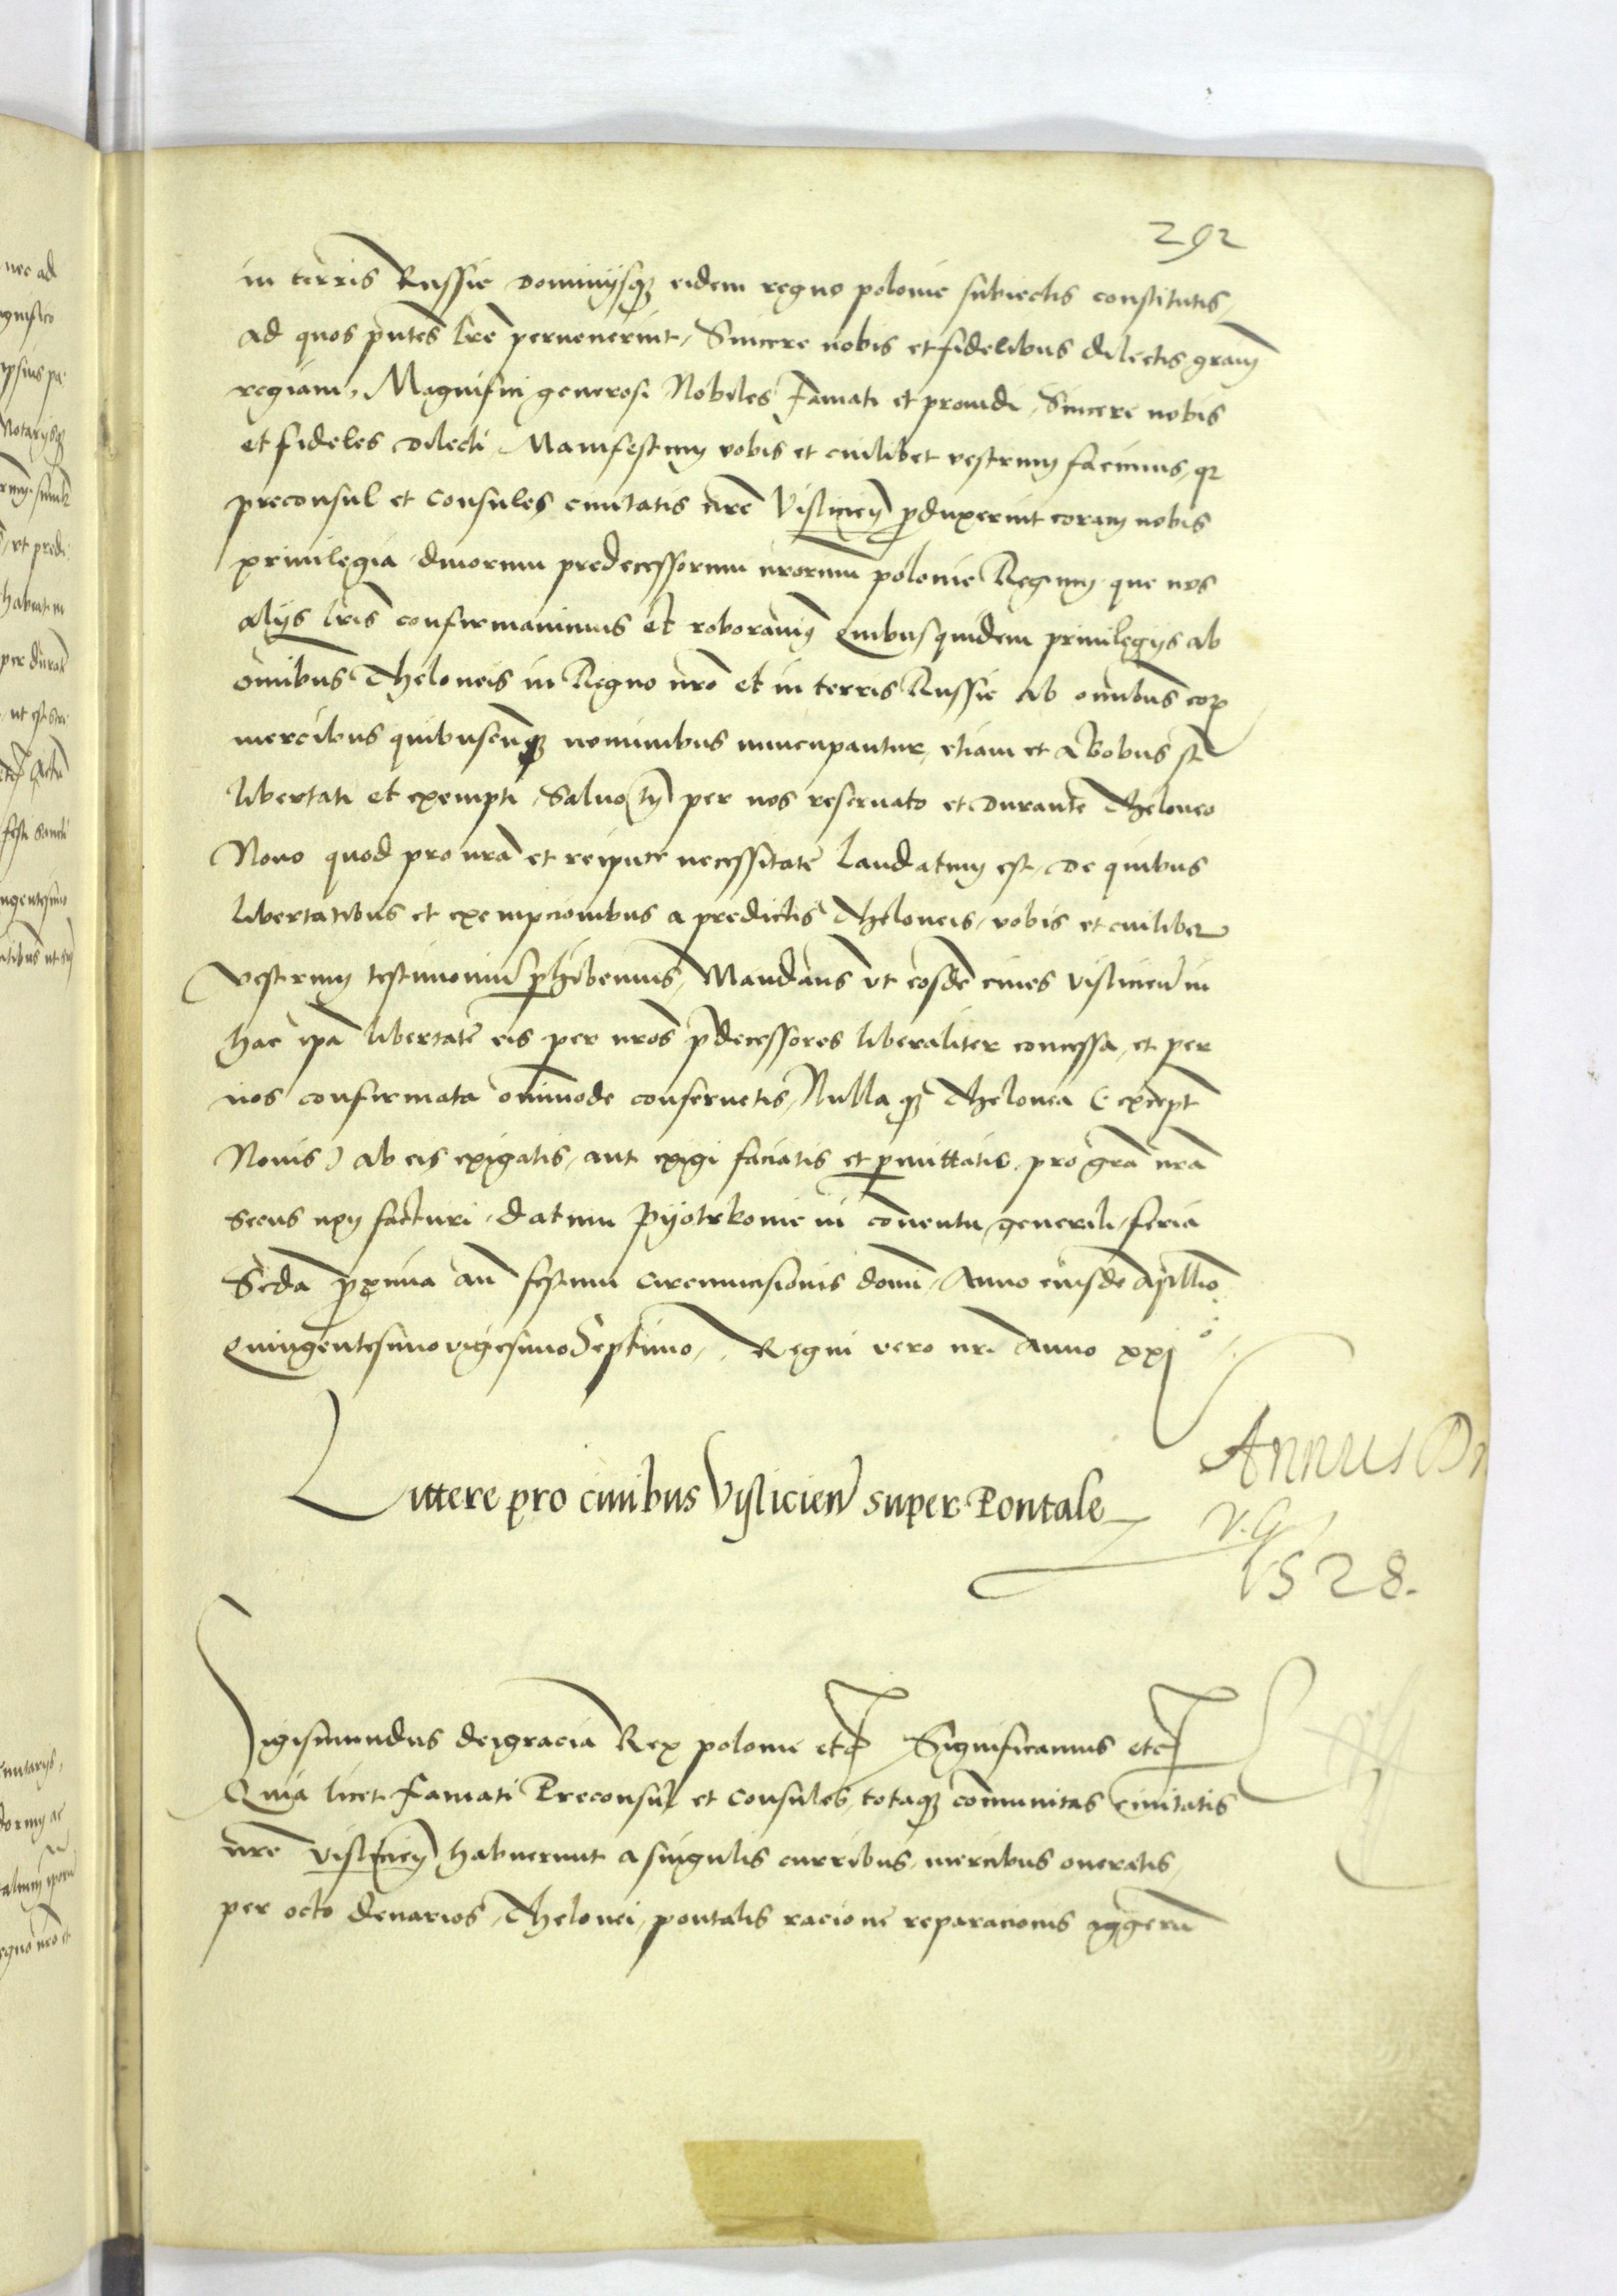 292
in terris Russie dominijsqз eidem regno polonie subiectis constitutis,
ad quos pñtes lre͂ peruenerint, Sincere nobis et fidelibus dilectis gram̃
regiam, Magnifici generosi Nobiles Famati et prouidi, Sincere nobis
et fideles dilecti, Manifestum vobis et cuilibet vestrum facimus, qr
preconsul et consules ciuitatis nre͂ Visliciẽn ꝓduxerint coram nobis
priuilegia diuorum predecessorum nrorum̃ polonie Regum, que nos
alijs lris̃ confirmauimus et roborauimꝰ Quibusquidem priuilegijs ab
omnibus̃ Theloneis in Regno nrõ et in terris Russie ab omnibus̃ eoꝝ
mercibus quibuscunqз nominibus nuncupantur, etiam et a bobus st̃
libertati et exempti, Saluo tñ per nos reseruato et durante Theloneo
Nouo quod pro nrã et reipuce necessitate laudatum est, De quibus
libertatibus et exempcionibus a predictis Theloneis, vobis et cuilibet
vestrum testimoniũ ꝑhibemus, Mandañs vt eosdẽ ciues visliciẽn in
hac ipã libertatẽ eis per nros̃ p̃decessores liberaliter concessa, et per
nos confirmata om̃imode conseruetis, Nulla qз Thelonea (except̃
Nouis) ab eis exigatis, aut exigi faciatis et ꝑmittatis, pro grã nrã
secus non facturi, datum Pijotrkouie in conuentu generali, feria
Sec̃da ꝓxima an̄ festum circumcisionis domĩ, Anno eiusdẽ Millĩo
quingentesimovigesimoSeptimo, Regni vero nri Anno xxjo
Littere pro ciuibus Visliciẽn super Pontale
Annus D
V. G
1528.
Sigismundus deigracia Rex polonie etc̃ Significamus etc̃
Quia licet famati Preconsul et consules, totaqз com̃unitas ciuitatis
nre͂ visliciẽn habuerunt a singulis curribus, mercibus oneratis,
per octo denarios, Thelonei, pontalis racionẽ reparacionis aggerũ